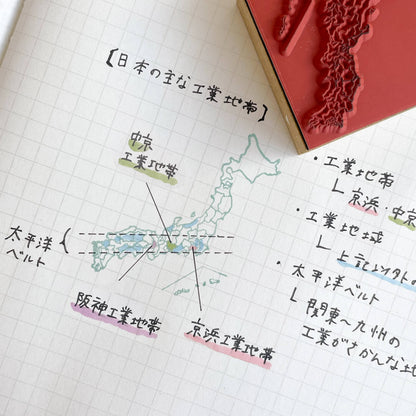 【日本の主な工業地帯】
中京
工業地帯
太平洋
ベルト
阪神工業地帯
京浜工業地帯
・工業地帯
└ 京浜・中京
・工業地域
└ 上記以外の
・太平洋ベルト
└ 関東〜九州の
工業がさかんな地